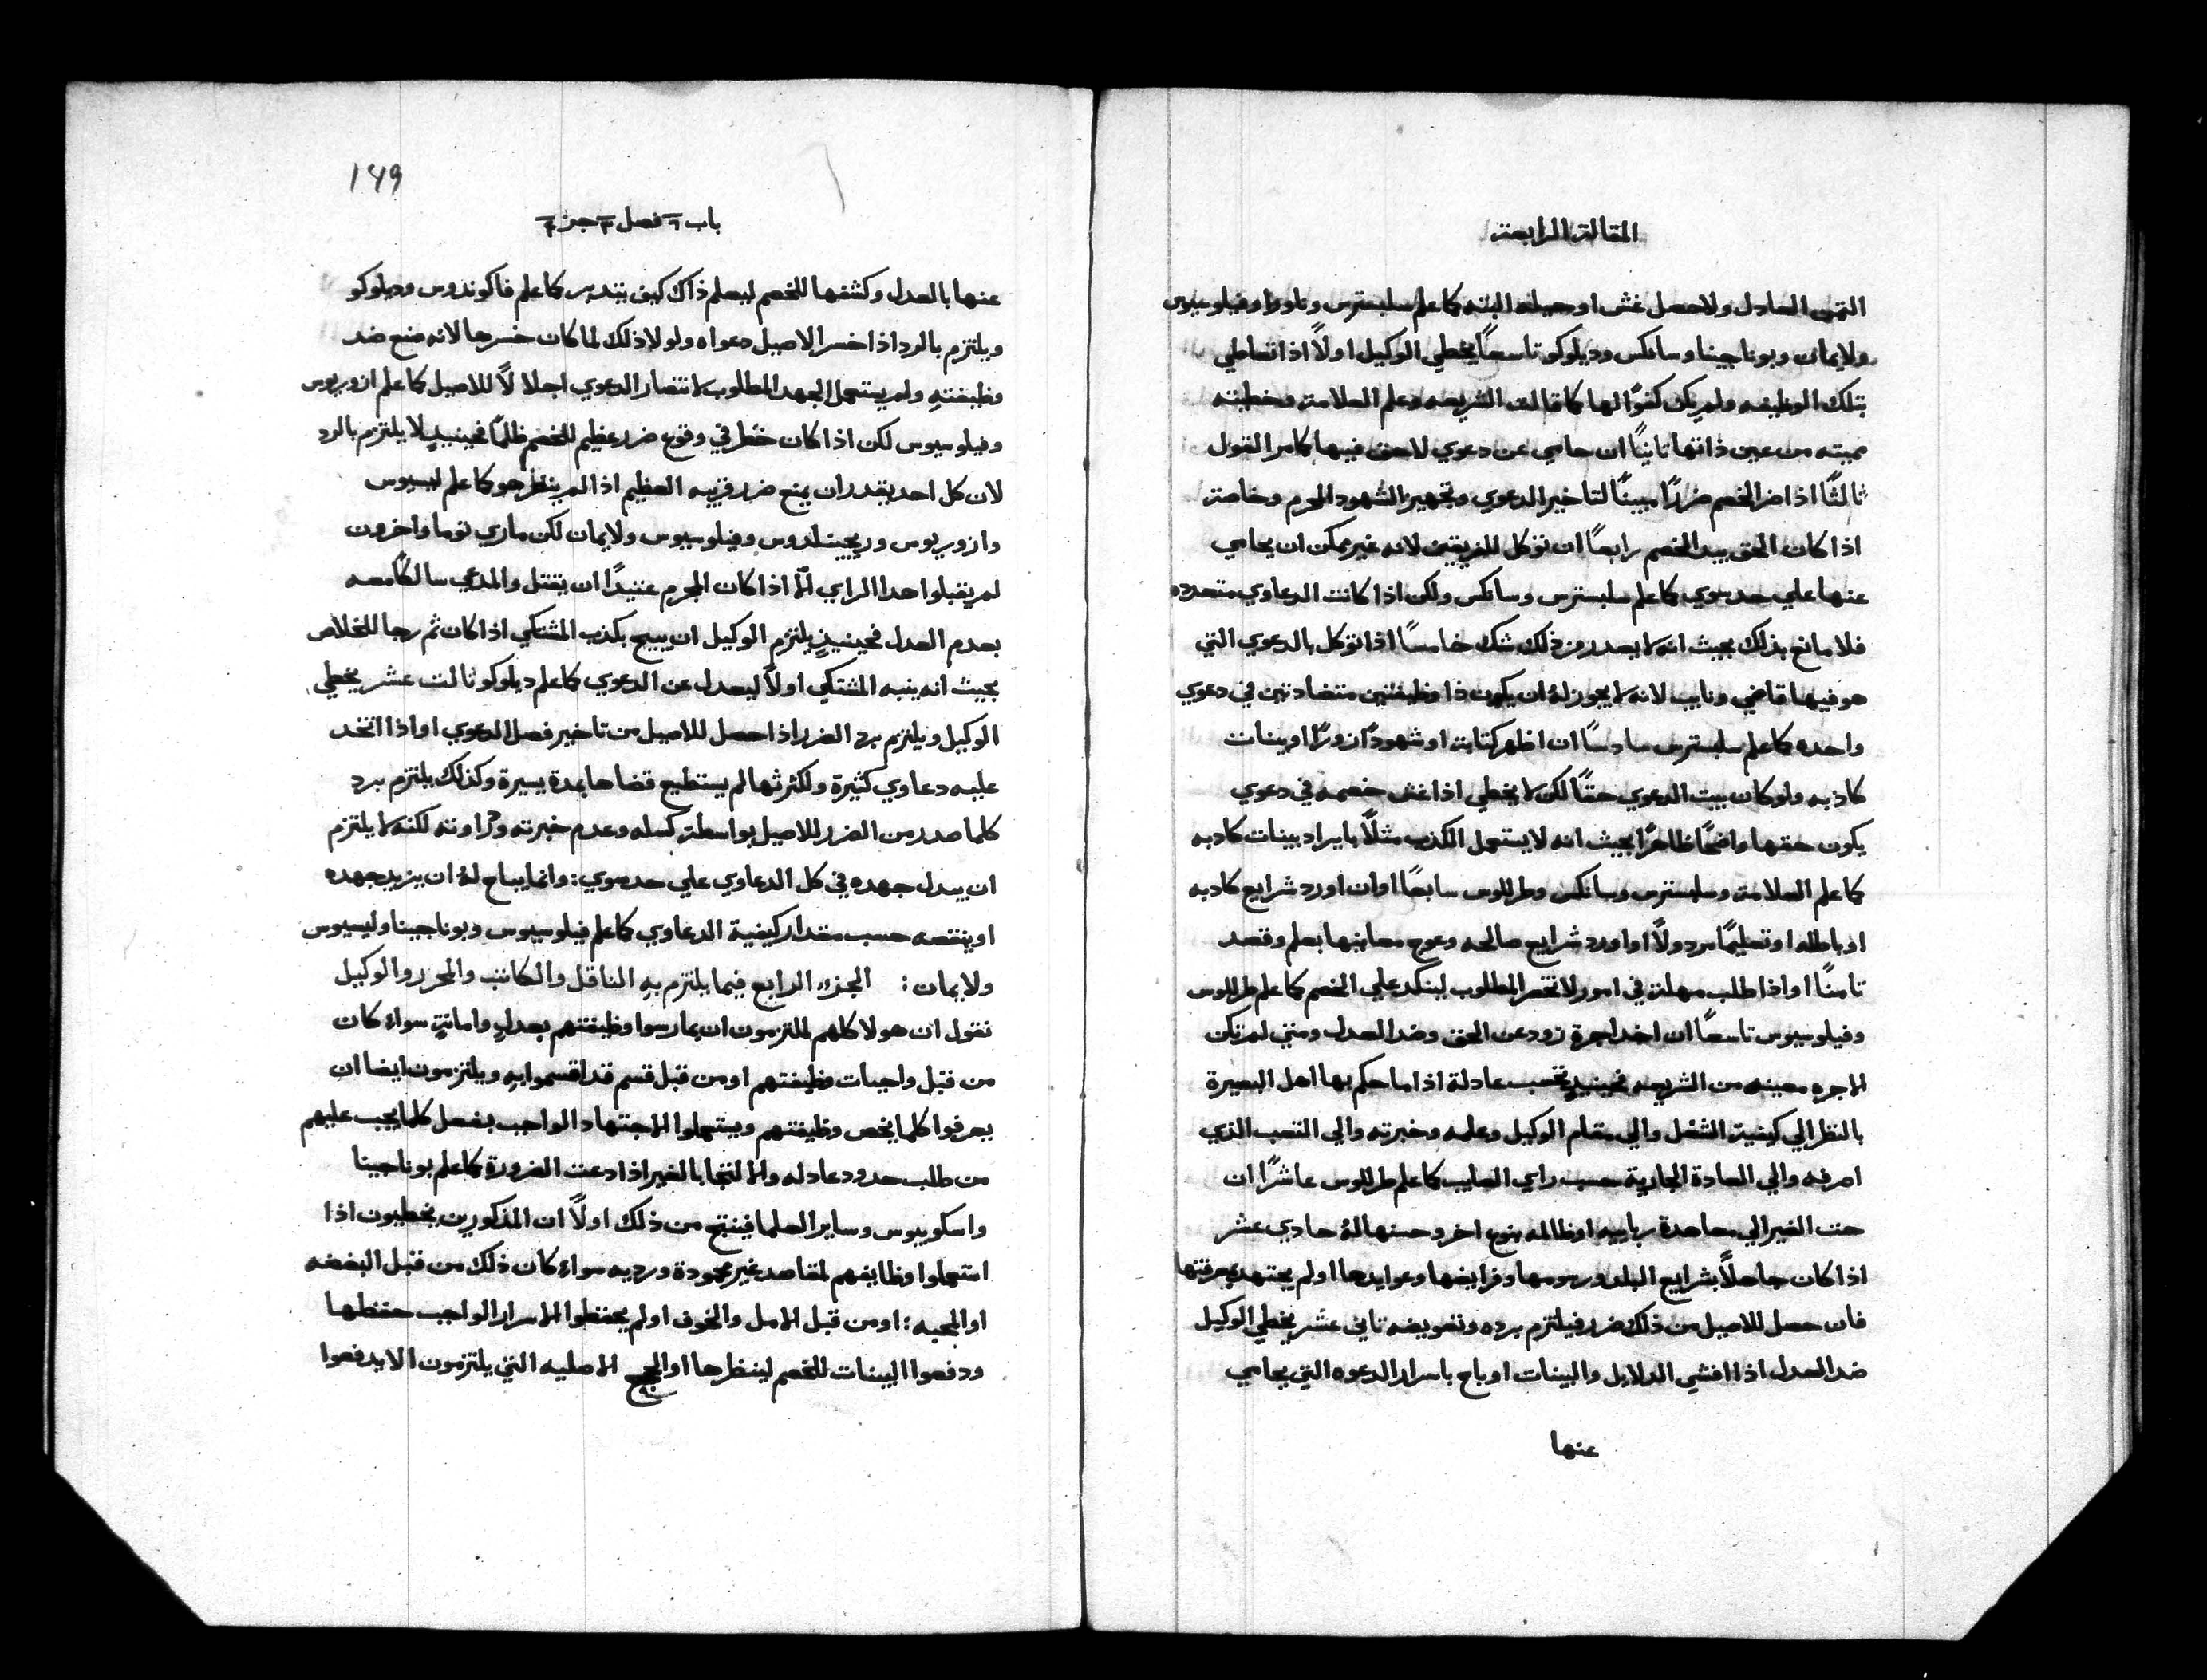 المقالة الرابعة
الثمن العادل ولا حصل غش او حيله البته كما علم سلبسترس وناورا وفيلوسيوس
ولايمان وبوناجينا وسانكس وديلوكو تاسعًا يخطي الوكيل اولًا اذا تعاطي
بتلك الوظيفه ولم يكن كفوًا لها كما قالت الشريعه وعلم العلامة وخطيته
مميته من عين ذاتها ثانيًا ان حامي عن دعوي لا حق فيها كما مر القول
ثالثًا اذا ضر الخصم ضررًا مبينًا لتاخير الدعوي وتجهيز الشهود المحرم وخاصة
اذا كان الحق بيد الخصم رابعًا ان توكل للفريقين لانه غير ممكن ان يحامي
عنها علي حد سوي كما علم سلبسترس وسانكس ولكن اذا كانت الدعاوي متعدده
فلا مانع بذلك بحيث انه لا يصدر من ذلك شك خامسًا اذا توكل بالدعوي التي
هو فيها قاضي ونايب لانه لا يجوز له ان يكون ذا وظيفتين متضادتين في دعوي
واحده كما علم سلبسترس سادسًا ان اظهر كتابة او شهودًا زورًا او بينات
كاذبه ولو كان بيت الدعوي حقًا لكن لا يخطي اذا غش خصمه في دعوي
يكون حقها واضحًا ظاهرًا بحيث انه لا يستعمل الكذب مثلًا بايراد بينات كادبه
كما علم العلامة وسلبسترس وسانكس وطرللوس سابعًا اوان اورد شرايع كادبه
او باطله او تعليمًا مردولًا او اورد شرايع صالحه وعوج معانيها بعلم وقصد
تامنًا او اذا طلب مهلة في امور لا تخص المطلوب لينكد علي الخصم كما علم طرللوس
وفيلوسيوس تاسعًا ان اخد اجرة زود عن الحق وضد العدل ومتي لم تكن
الاجره معينه من الشريعه فحينيدٍ تحسب عادلة اذا ما حكم بها اهل البصيرة
بالنظر الي كيفية الشغل والي مقام الوكيل وعلمه وخبرته والي التعب الذي
اصرفه والي العادة الجارية حسب راي الصايب كما علم طرللوس عاشرًا ان
حت الغير الي معاهدة رباييه او ظالمه بنوع اخر وحسنها له حادي عشر
اذا كان جاهلًا بشرايع البلد ورسومها وفرايضها وعوايدها او لم يجتهد بمعرفتها
فان حصل للاصيل من ذلك ضرر فيلتزم برده وتعويضه تاني عشر يخطي الوكيل
ضد العدل اذا افشي الدلايل والبينات او باح باسرار الدعوه التي يحامي
عنها
149
باب ٦ فصل ٣ جز ٤
عنها بالعدل وكشفها للخصم ليعلم ذاك كيف يتدبر كما علم فاكوندوس وديلوكو
ويلتزم بالرد اذا خسر الاصيل دعواه ولولا ذلك لما كان خسرها لانه صنع ضد
وظيفتهِ ولم يستعمل الجهد المطلوب لانتصار الدعوي اجلالًا للاصيل كما علم ازوريوس
وفيلوسيوس لكن اذا كان خطر في وقوع ضرر عظيم للخصم ظلمًا فحينيدٍ لا يلتزم بالرد
لان كل احد يقدر ان يمنع ضرر قريبه العظيم اذا لم ينظر هو كما علم ليسيوس
وازوريوس وريجينلدوس وفيلوسيوس ولايمان لكن ماري توما واخرون
لم يقبلوا هدا الراي الّا اذا كان المجرم عتيدًا ان يقتل والمدعي سالكًا معه
بعدم العدل فحينيذٍ يلتزم الوكيل ان يبيح بكذب المشتكي اذا كان ثم رجا للخلاص
بحيث انه ينبه المشتكي اولًا ليعدل عن الدعوي كما علم ديلوكو تالت عشر يخطي
الوكيل ويلتزم برد الضرر اذا حصل للاصيل من تاخير فصل الدعوي او اذا اتخد
عليه دعاوي كثيرة ولكثرتها لم يستطيع قضاها بمدة يسيرة وكذلك يلتزم برد
كلما صدر من الضرر للاصيل بواسطة كسله وعدم خبرته ولكنه لا يلتزم
ان يبدل جهده في كل الدعاوي علي حد سوي: وانما يباح له ان يزيد جهده
او ينقصه حسب مقدار كيفية الدعاوي كما علم فيلوسيوس وبوناجينا وليسيوس
ولايمان: الجزء الرابع فيما يلتزم بهِ الناقل والكاتب والمحرر والوكيل
نقول ان هولا كلهم ملتزمون ان يمارسوا وظيفتهم بعدلٍ وامانةٍ سواءً كان
من قبل واجبات وظيفتهم او من قبل قسم قد اقسموا بهِ ويلتزمون ايضا ان
يعرفوا كلما يخص وظيفتهم ويستعملوا الاجتهاد الواجب بفعل كلما يجب عليهم
من طلب حدود عادله والالتجا بالغير اذا دعت الضرورة كما علم بوناجينا
واسكوبيوس وساير العلما فينتج من ذلك اولًا ان المذكورين يخطيون اذا
استعملوا وظايفهم لمقاصد غير محمودة ورديه سواءً كان ذلك من قبل البغضه
او المحبه: او من قبل الامل والخوف او لم يحفظوا الاسرار الواجب حفظها
ودفعوا البينات للخصم لينظرها او الحجج الاصليه التي يلتزمون الا يدفعوا